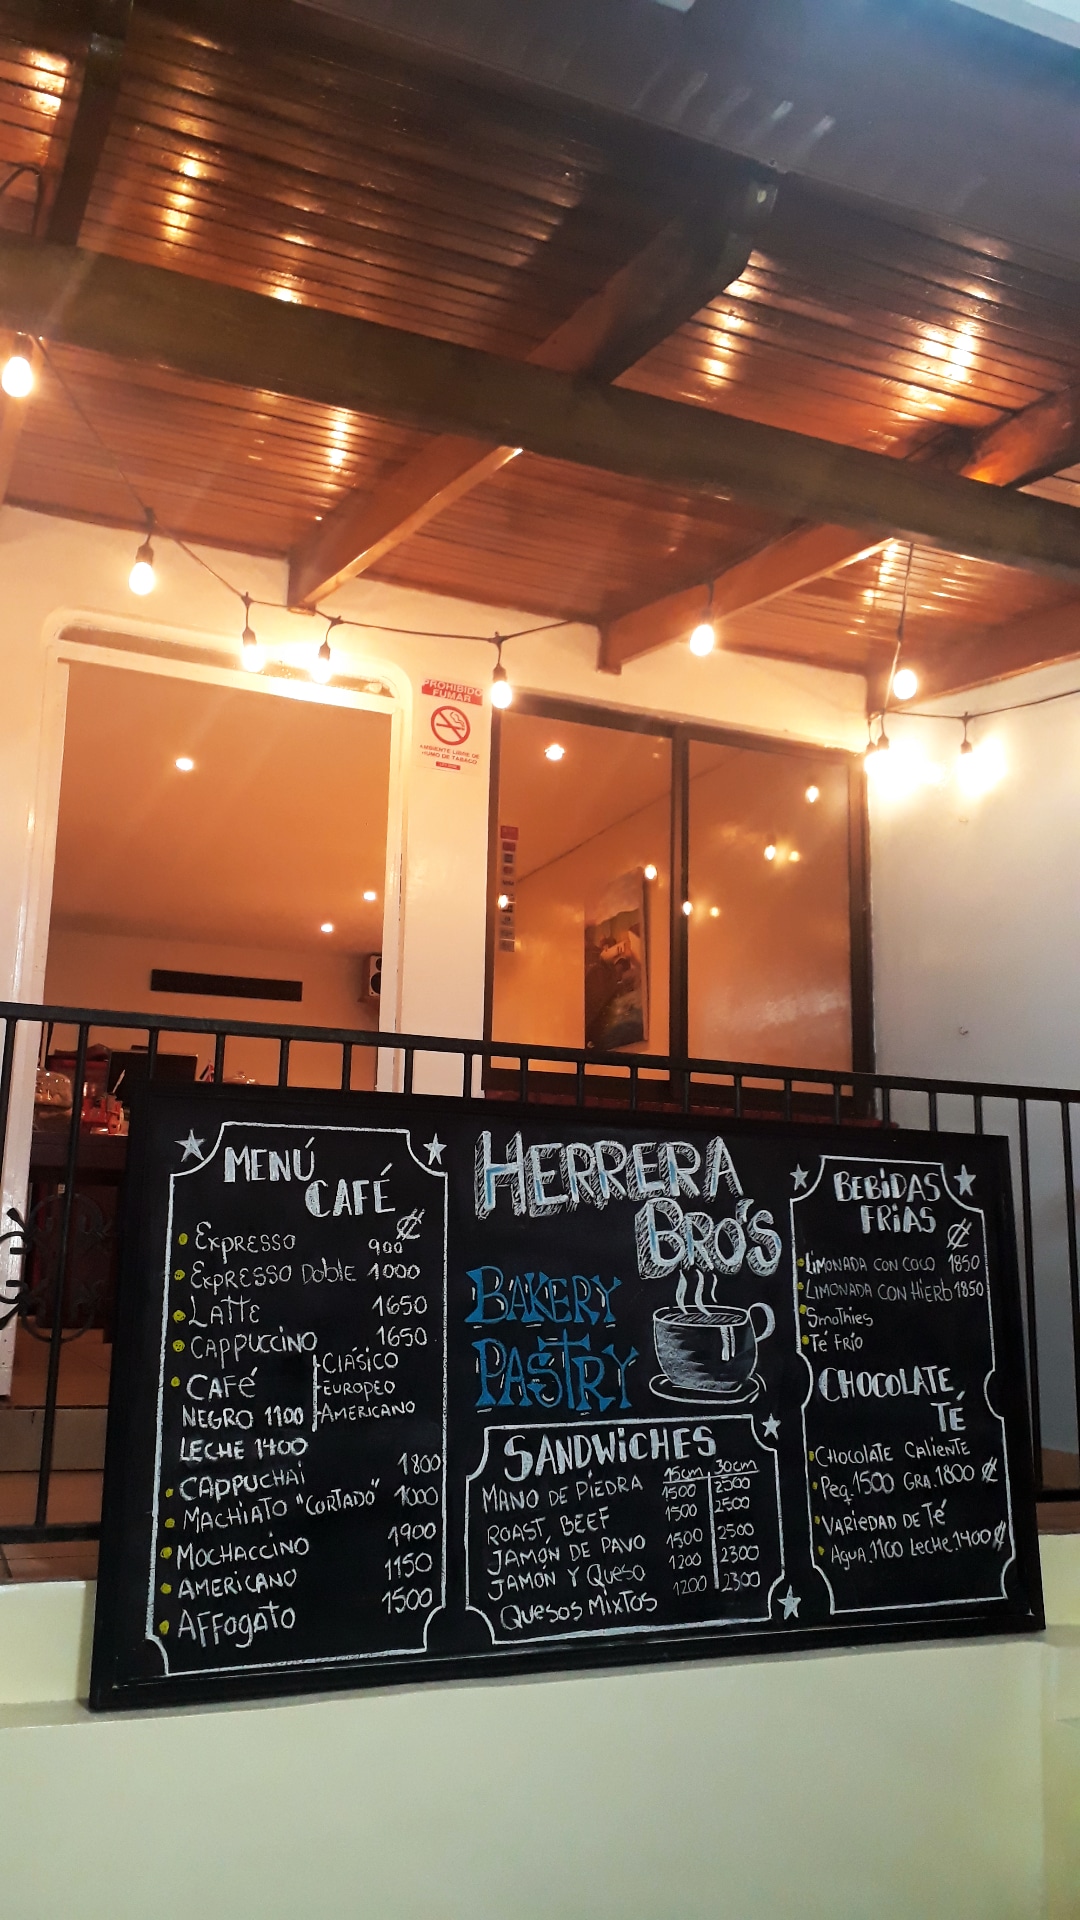 PROHIBIDO
FUMAR
AMBIENTE LIBRE DE
HUMO DE TABACO
MENÚ
CAFÉ
₡
Expresso 900
Expresso Doble 1000
Latte 1650
Cappuccino 1650
Café
Negro 1100
Leche 1400
Clásico
Europeo
Americano
Cappuchai 1800
Machiato "Cortado" 1000
Mochaccino 1900
Americano 1150
Affogato 1500
HERRERA
BRO'S
BAKERY
PASTRY
SANDWiCHES
15cm 30cm
Mano de Piedra 1500 2500
Roast Beef 1500 2500
Jamón de Pavo 1500 2500
Jamón y Queso 1200 2300
Quesos Mixtos 1200 2300
BEBiDAS
FRiAS
₡
Limonada con coco 1850
Limonada con Hierb 1850
Smothies
Té Frío
CHOCOLATE,
TÉ
Chocolate Caliente
Peq. 1500 Gra. 1800 ₡
Variedad de Té
Agua. 1100 Leche. 1400 ₡